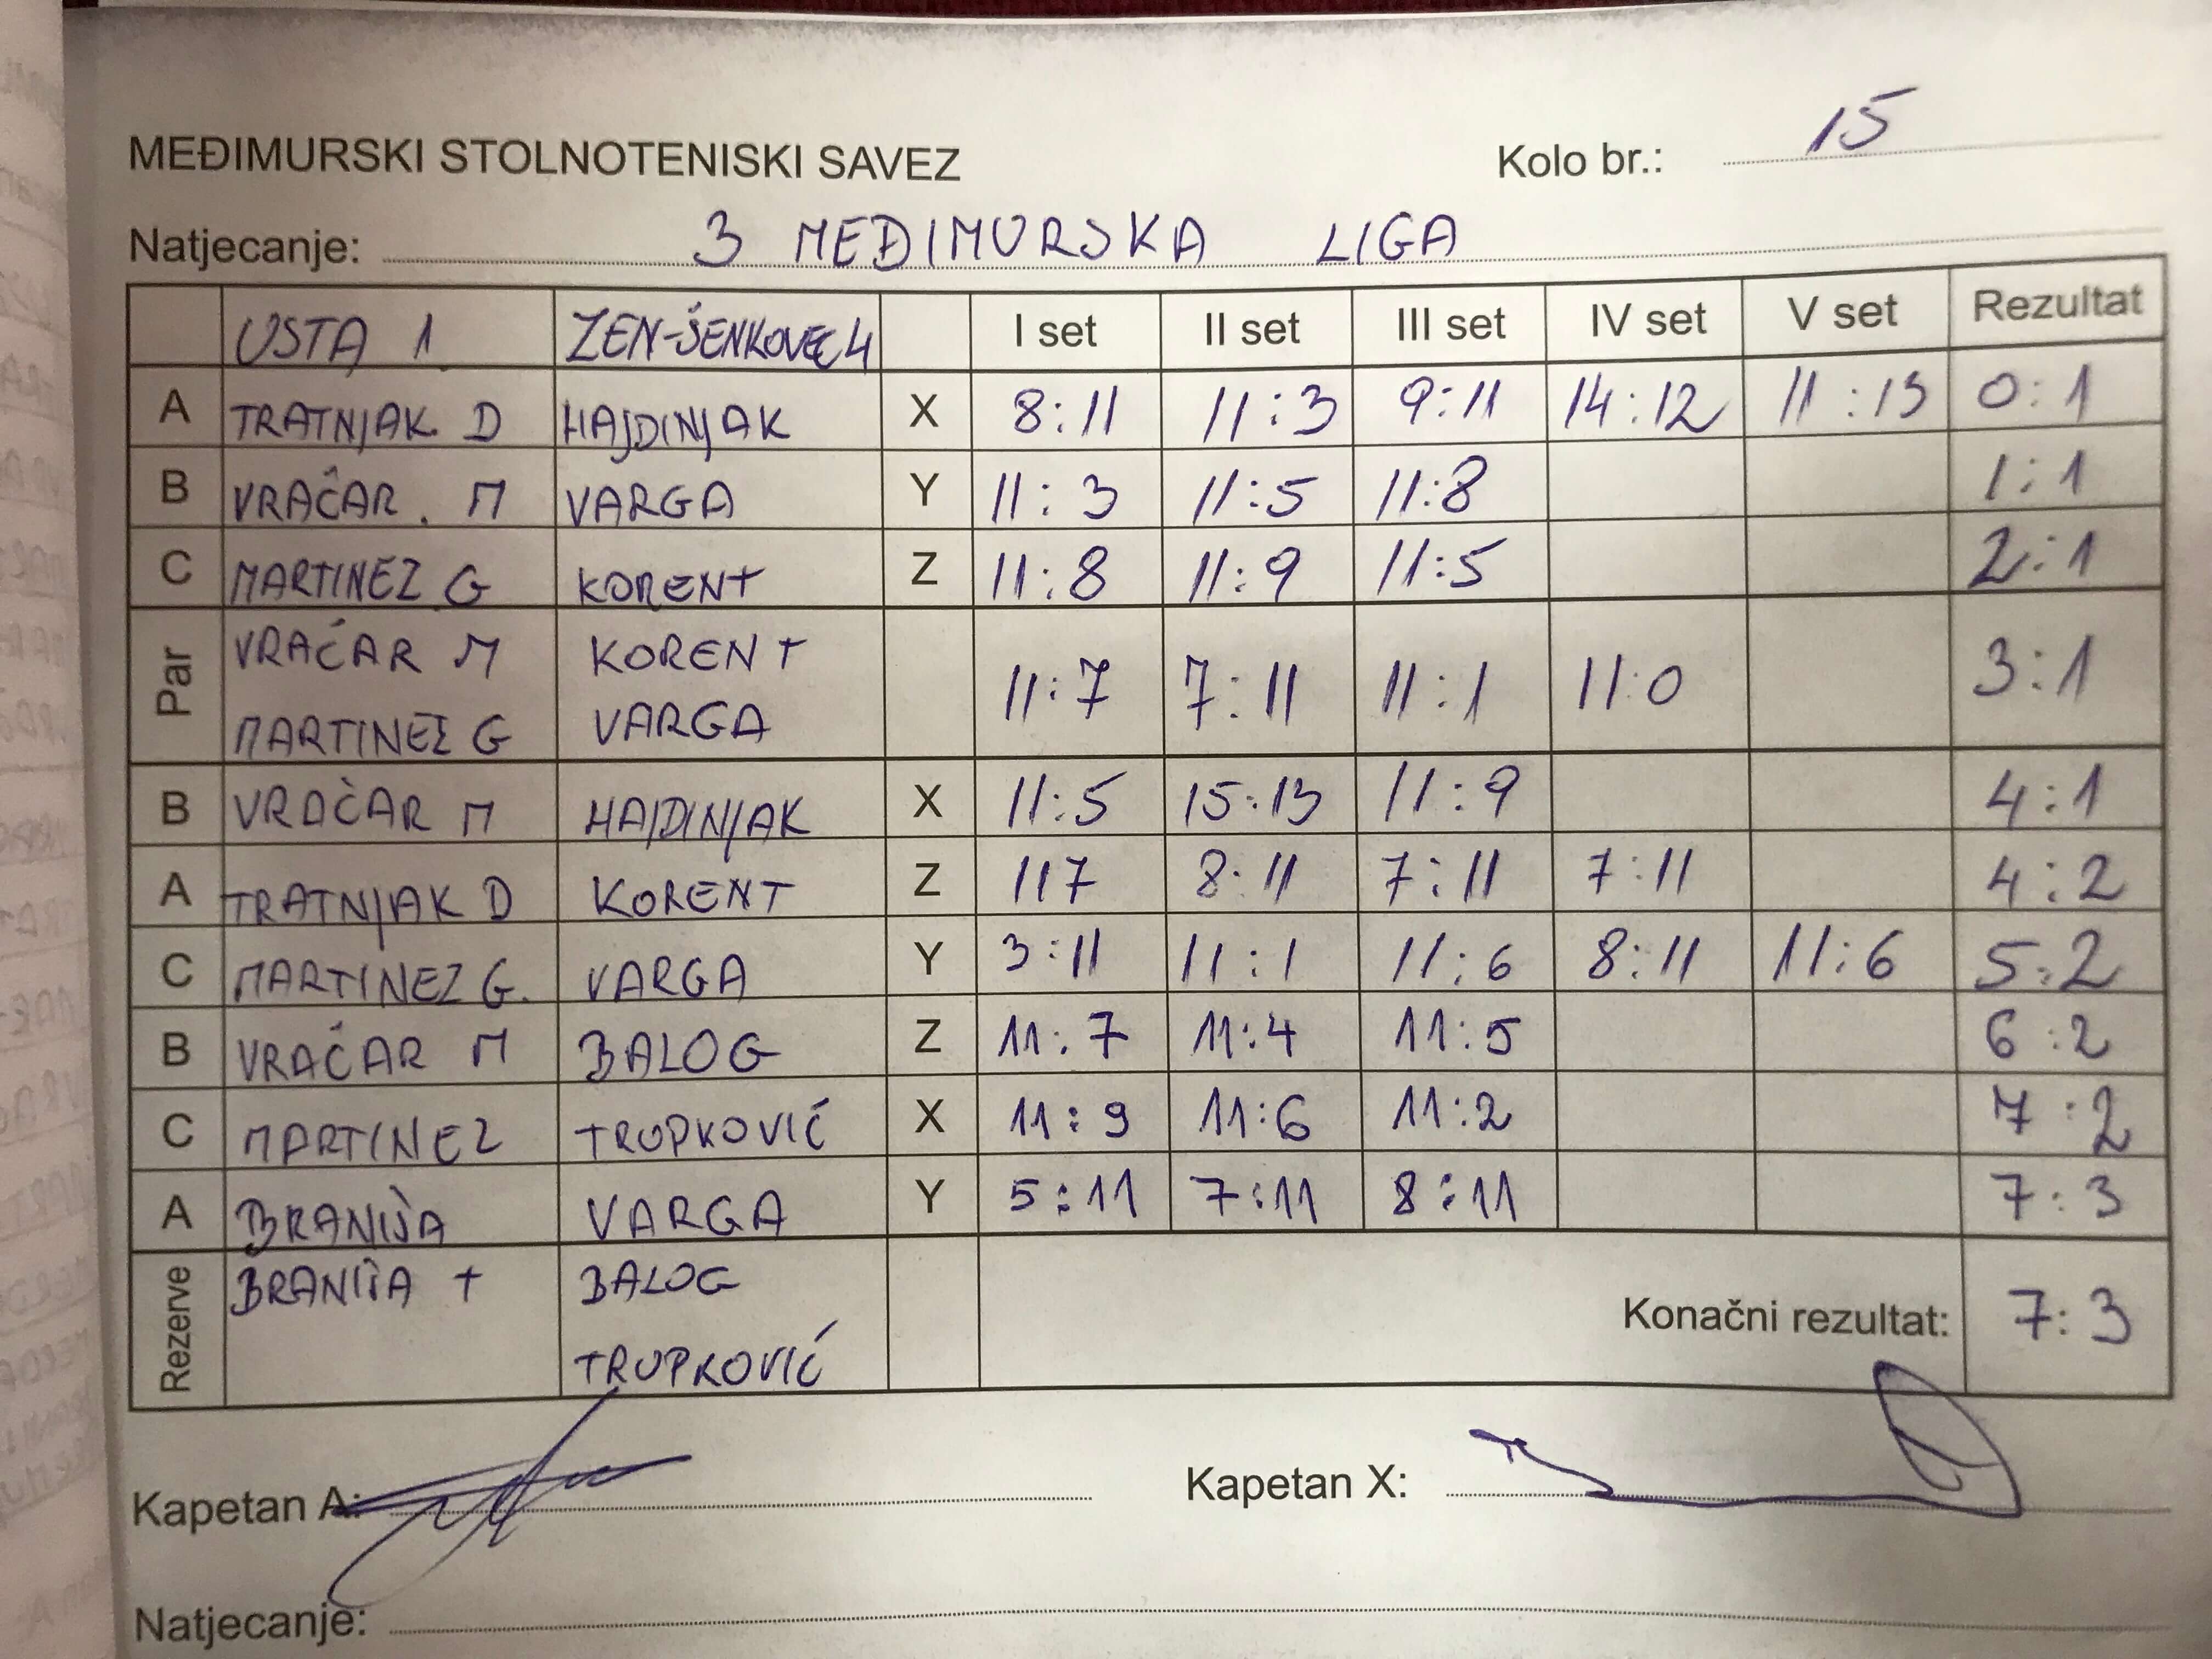 MEĐIMURSKI STOLNOTENISKI SAVEZ Kolo br.: 15
Natjecanje: 3 MEĐIMURSKA LIGA
USTA 1 ZEN-ŠENKOVEC 4 I set II set III set IV set V set Rezultat
A TRATNJAK D HAJDINJAK X 8:11 11:3 9:11 14:12 11:13 0:1
B VRAČAR. M VARGA Y 11:3 11:5 11:8 1:1
C MARTINEZ G KORENT Z 11:8 11:9 11:5 2:1
Par VRAČAR M KORENT 11:7 7:11 11:1 11:0 3:1
MARTINEZ G VARGA
B VRAČAR M HAJDINJAK X 11:5 15:13 11:9 4:1
A TRATNJAK D KORENT Z 117 8:11 7:11 7:11 4:2
C MARTINEZ G. VARGA Y 3:11 11:1 11:6 8:11 11:6 5:2
B VRAČAR M BALOG Z 11:7 11:4 11:5 6:2
C MARTINEZ TRUPKOVIĆ X 11:9 11:6 11:2 7:2
A BRANIŠA VARGA Y 5:11 7:11 8:11 7:3
Rezerve BRANIŠA T BALOG Konačni rezultat: 7:3
TRUPKOVIĆ
Kapetan A: Kapetan X:
Natjecanje: